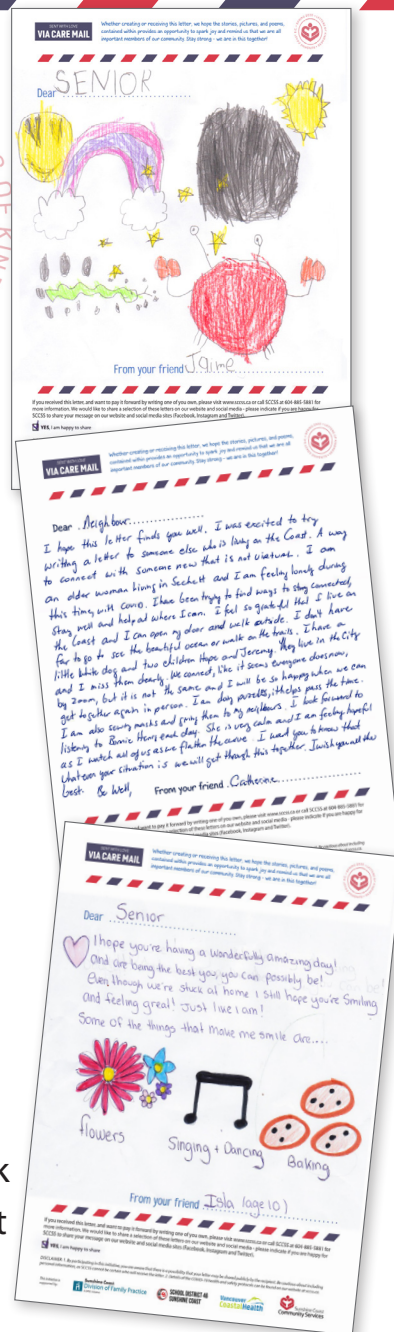 SENT WITH LOVE
VIA CARE MAIL
Whether creating or receiving this letter, we hope the stories, pictures, and poems,
contained within provides an opportunity to spark joy and remind us that we are all
important members of our community. Stay strong - we are in this together!
Dear SENIOR
From your friend Jaime
If you received this letter, and want to pay it forward by writing one of your own, please visit www.sccss.ca or call SCCSS at 604-885-5881 for
more information. We would like to share a selection of these letters on our website and social media - please indicate if you are happy for
SCCSS to share your message on our website and social media sites (Facebook, Instagram and Twitter).
YES, I am happy to share
SENT WITH LOVE
VIA CARE MAIL
Whether creating or receiving this letter, we hope the stories, pictures, and poems,
contained within provides an opportunity to spark joy and remind us that we are all
important members of our community. Stay strong - we are in this together!
Dear Neighbour
I hope this letter finds you well. I was excited to try
writing a letter to someone else who is living on the Coast. A way
to connect with someone new that is not virtual. I am
an older woman living in Sechelt and I am feeling lonely during
this time, with covid. I have been trying to find ways to stay connected,
stay well and help out where I can. I feel so grateful that I live on
the Coast and I can open my door and walk outside. I don't have
far to go to see the beautiful ocean or walk on the trails. I have a
little white dog and two children Hope and Jeremy. They live in the City
and I miss them dearly. We connect, like it seems everyone does now,
by Zoom, but it is not the same and I will be so happy when we can
get together again in person. I am doing puzzles, it helps pass the time.
I am also sewing masks and giving them to my neighbours. I look forward to
listening to Bonnie Henry each day. She is very calm and I am feeling hopeful
as I watch all of us as we flatten the curve. I want you to know that
whatever your situation is we will get through this together. I wish you all the
best. Be Well,
From your friend Catherine
want to pay it forward by writing one of your own, please visit www.sccss.ca or call SCCSS at 604-885-5881 for
selection of these letters on our website and social media - please indicate if you are happy for
sites (Facebook, Instagram and Twitter).
SENT WITH LOVE
VIA CARE MAIL
Whether creating or receiving this letter, we hope the stories, pictures, and poems,
contained within provides an opportunity to spark joy and remind us that we are all
important members of our community. Stay strong - we are in this together!
Dear Senior
I hope you're having a wonderfully amazing day!
and are being the best you, you can possibly be!
Even though we're stuck at home I still hope you're smiling
and feeling great! Just like I am!
Some of the things that make me smile are....
flowers
Singing + Dancing
Baking
From your friend Isla (age 10)
If you received this letter, and want to pay it forward by writing one of your own, please visit www.sccss.ca or call SCCSS at 604-885-5881 for
more information. We would like to share a selection of these letters on our website and social media - please indicate if you are happy for
SCCSS to share your message on our website and social media sites (Facebook, Instagram and Twitter).
YES, I am happy to share
Sunshine Coast
Division of Family Practice
SCHOOL DISTRICT 46
SUNSHINE COAST
Vancouver
CoastalHealth
Sunshine Coast
Community Services